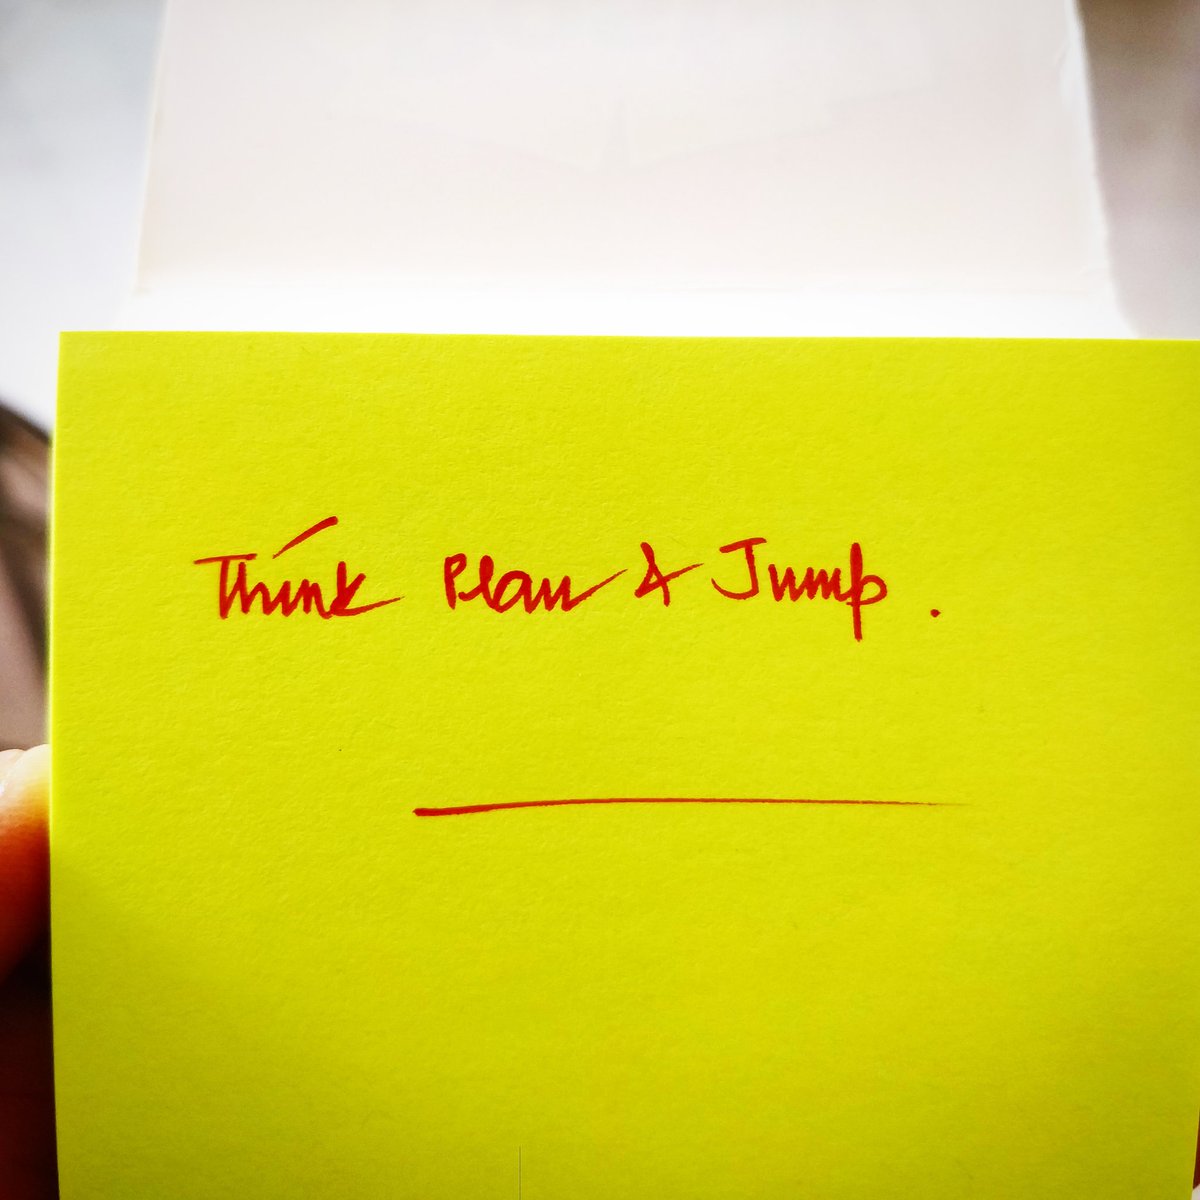 Think Plan & Jump .